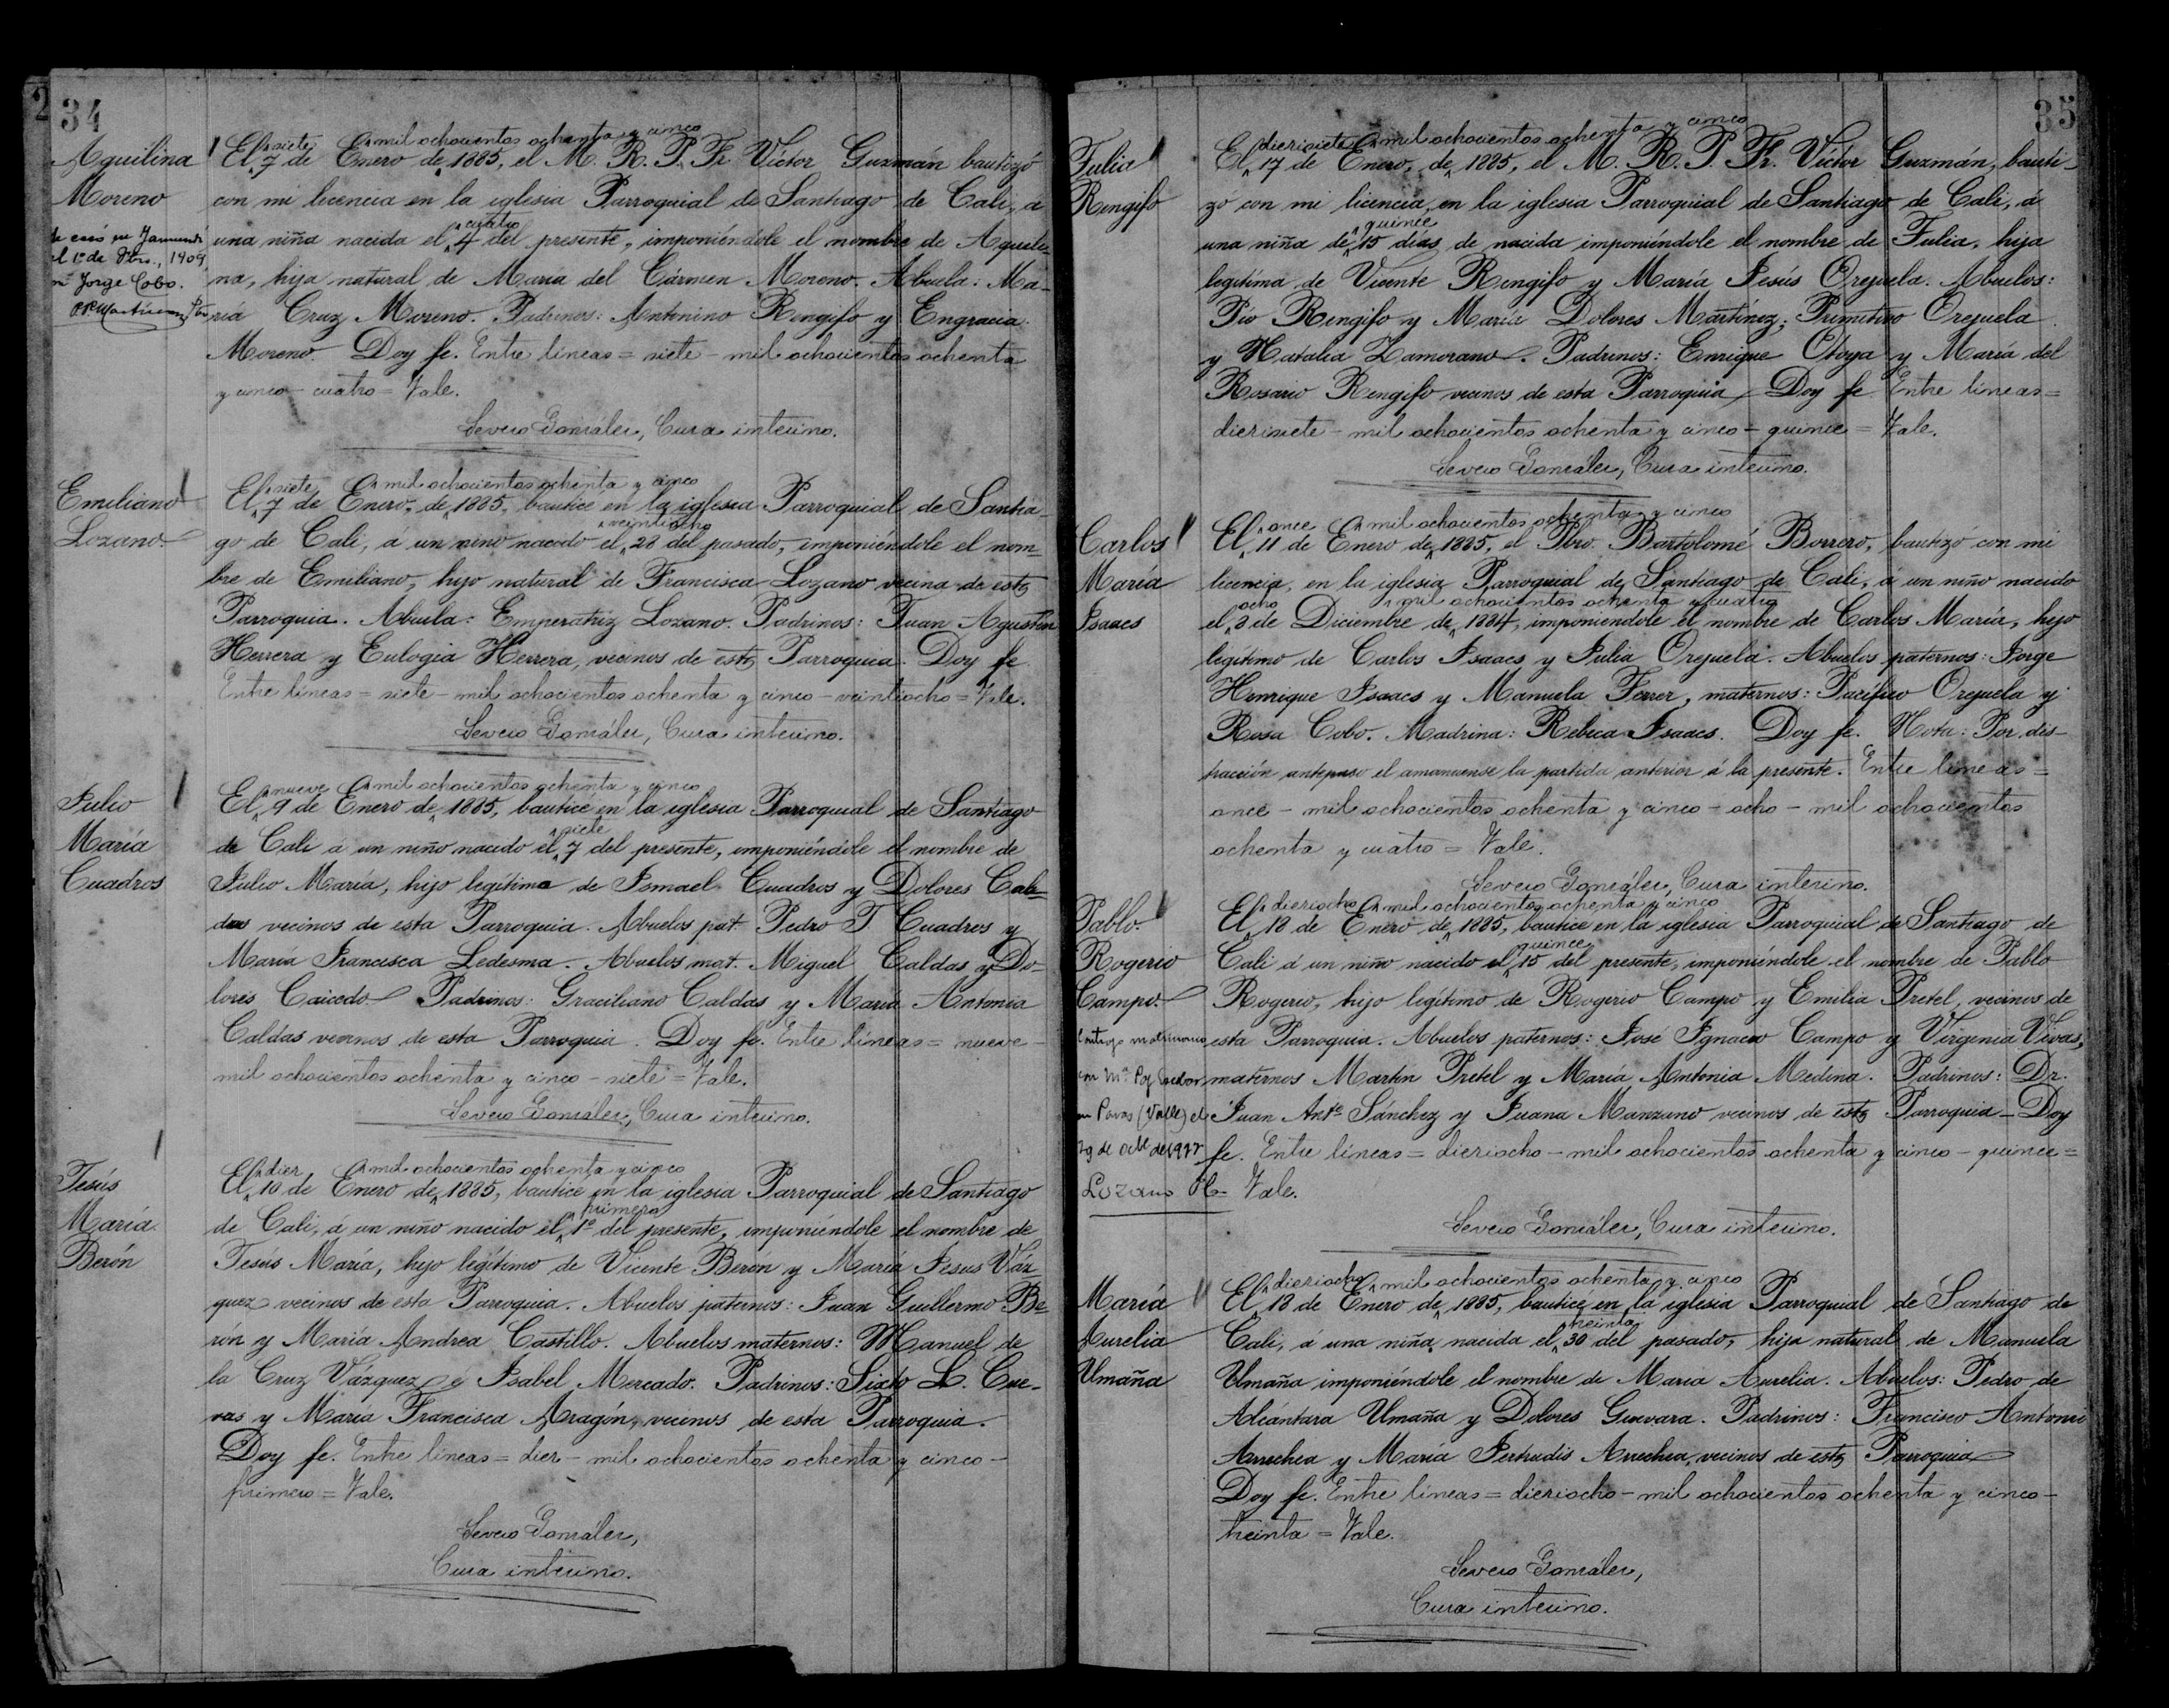 2
34
Aquilina
Moreno
se casó en Jamundí
el 1º de Fbro., 1909,
Jorge Cobo.
siete mil ochocientos ochenta y cinco
El 7 de Enero de 1885, el M. R. P. Fr. Víctor Guzmán bautizó
con mi licencia en la iglesia Parroquial de Santiago de Cali, á
cuatro
una niña nacida el 4 del presente, imponiéndole el nombre de Aquili-
na, hija natural de María del Cármen Moreno. Abuela: Ma-
ría Cruz Moreno. Padrinos: Antonino Rengifo y Engracia
Moreno. Doy fe. Entre líneas = siete - mil ochocientos ochenta
y cinco - cuatro = Vale.
Severo González, Cura interino.
Emiliano
Lozano
siete mil ochocientos ochenta y cinco
El 7 de Enero, de 1885, bauticé en la iglesia Parroquial de Santia-
veintiocho
go de Cali, á un niño nacido el 28 del pasado, imponiéndole el nom-
bre de Emiliano, hijo natural de Francisca Lozano vecina de esta
Parroquia. Abuela: Emperatriz Lozano. Padrinos: Juan Agustín
Herrera y Eulogia Herrera, vecinos de esta Parroquia. Doy fe
Entre líneas = siete - mil ochocientos ochenta y cinco - veintiocho = Vale.
Severo González, Cura interino.
Julio
María
Cuadros
nueve mil ochocientos ochenta y cinco
El 9 de Enero de 1885, bauticé en la iglesia Parroquial de Santiago
siete
de Cali á un niño nacido el 7 del presente, imponiéndole el nombre de
Julio María, hijo legítimo de Ismael Cuadros y Dolores Cal-
das vecinos de esta Parroquia. Abuelos pat. Pedro T. Cuadros y
María Francisca Ledesma. Abuelos mat. Miguel Caldas y Do-
lores Caicedo Padrinos: Graciliano Caldas y María Antonia
Caldas vecinos de esta Parroquia. Doy fe. Entre líneas = nueve -
mil ochocientos ochenta y cinco - siete = Vale.
Severo González, Cura interino.
Jesús
María
Berón
diez mil ochocientos ochenta y cinco
El 10 de Enero de 1885, bauticé en la iglesia Parroquial de Santiago
primero
de Cali, á un niño nacido el 1º del presente, imponiéndole el nombre de
Jesús María, hijo legítimo de Vicente Berón y María Jesús Váz
quez vecinos de esta Parroquia. Abuelos paternos: Juan Guillermo Be-
rón y María Andrea Castillo. Abuelos maternos: Manuel de
la Cruz Vázquez é Isabel Mercado. Padrinos: Sixto L. Cue-
vas y María Francisca Aragón, vecinos de esta Parroquia.
Doy fe. Entre líneas = diez - mil ochocientos ochenta y cinco -
primero = Vale.
Severo González,
Cura interino.
35
Julia
Rengifo
diezisiete mil ochocientos ochenta y cinco
El 17 de Enero, de 1885, el M. R. P. Fr. Víctor Guzmán, bauti-
zó con mi licencia en la iglesia Parroquial de Santiago de Cali, á
quince
una niña de 15 días de nacida imponiéndole el nombre de Julia, hija
legítima de Vicente Rengifo y María Jesús Orejuela. Abuelos:
Pío Rengifo y María Dolores Martínez; Primitivo Orejuela
y Natalia Zamorano. Padrinos: Enrique Otoya y María del
Rosario Rengifo vecinos de esta Parroquia Doy fe Entre líneas =
diezisiete - mil ochocientos ochenta y cinco - quince = Vale.
Severo González, Cura interino.
Carlos
María
Isaacs
once mil ochocientos ochenta y cinco
El 11 de Enero de 1885, el Pbro. Bartolomé Borrero, bautizó con mi
licencia, en la iglesia Parroquial de Santiago de Cali, á un niño nacido
ocho mil ochocientos ochenta y cuatro
el 8 de Diciembre de 1884, imponiéndole el nombre de Carlos María, hijo
legítimo de Carlos Isaacs y Julia Orejuela. Abuelos paternos: Jorge
Henrique Isaacs y Manuela Ferrer, maternos: Pacífico Orejuela y
Rosa Cobo. Madrina: Rebeca Isaacs. Doy fe. Nota: Por dis-
tracción antepuso el amanuense la partida anterior á la presente. Entre líneas =
once - mil ochocientos ochenta y cinco - ocho - mil ochocientos
ochenta y cuatro = Vale.
Severo González, Cura interino.
Pablo
Rogerio
Campo
Contrajo matrimonio
en Pavas (Valle) el
29 de Octe de
Lozano
dieziocho mil ochocientos ochenta y cinco
El 18 de Enero de 1885, bauticé en la iglesia Parroquial de Santiago de
quince
Cali á un niño nacido el 15 del presente, imponiéndole el nombre de Pablo
Rogerio, hijo legítimo de Rogerio Campo y Emilia Pretel, vecinos de
esta Parroquia. Abuelos paternos: José Ignacio Campo y Virginia Vivas,
maternos Martín Pretel y María Antonia Medina. Padrinos: Dr.
Juan Anto Sánchez y Juana Manzano vecinos de esta Parroquia - Doy
fe. Entre líneas = dieziocho - mil ochocientos ochenta y cinco - quince =
Vale.
Severo González, Cura interino.
María
Aurelia
Umaña
dieziocho mil ochocientos ochenta y cinco
El 18 de Enero de 1885, bauticé en la iglesia Parroquial de Santiago de
treinta
Cali, á una niña nacida el 30 del pasado, hija natural de Manuela
Umaña imponiéndole el nombre de María Aurelia. Abuelos: Pedro de
Alcántara Umaña y Dolores Guevara. Padrinos: Francisco Antonio
Arrechea y María Jertrudis Arrechea, vecinos de esta Parroquia
Doy fe. Entre líneas = dieziocho - mil ochocientos ochenta y cinco -
treinta = Vale.
Severo González,
Cura interino.